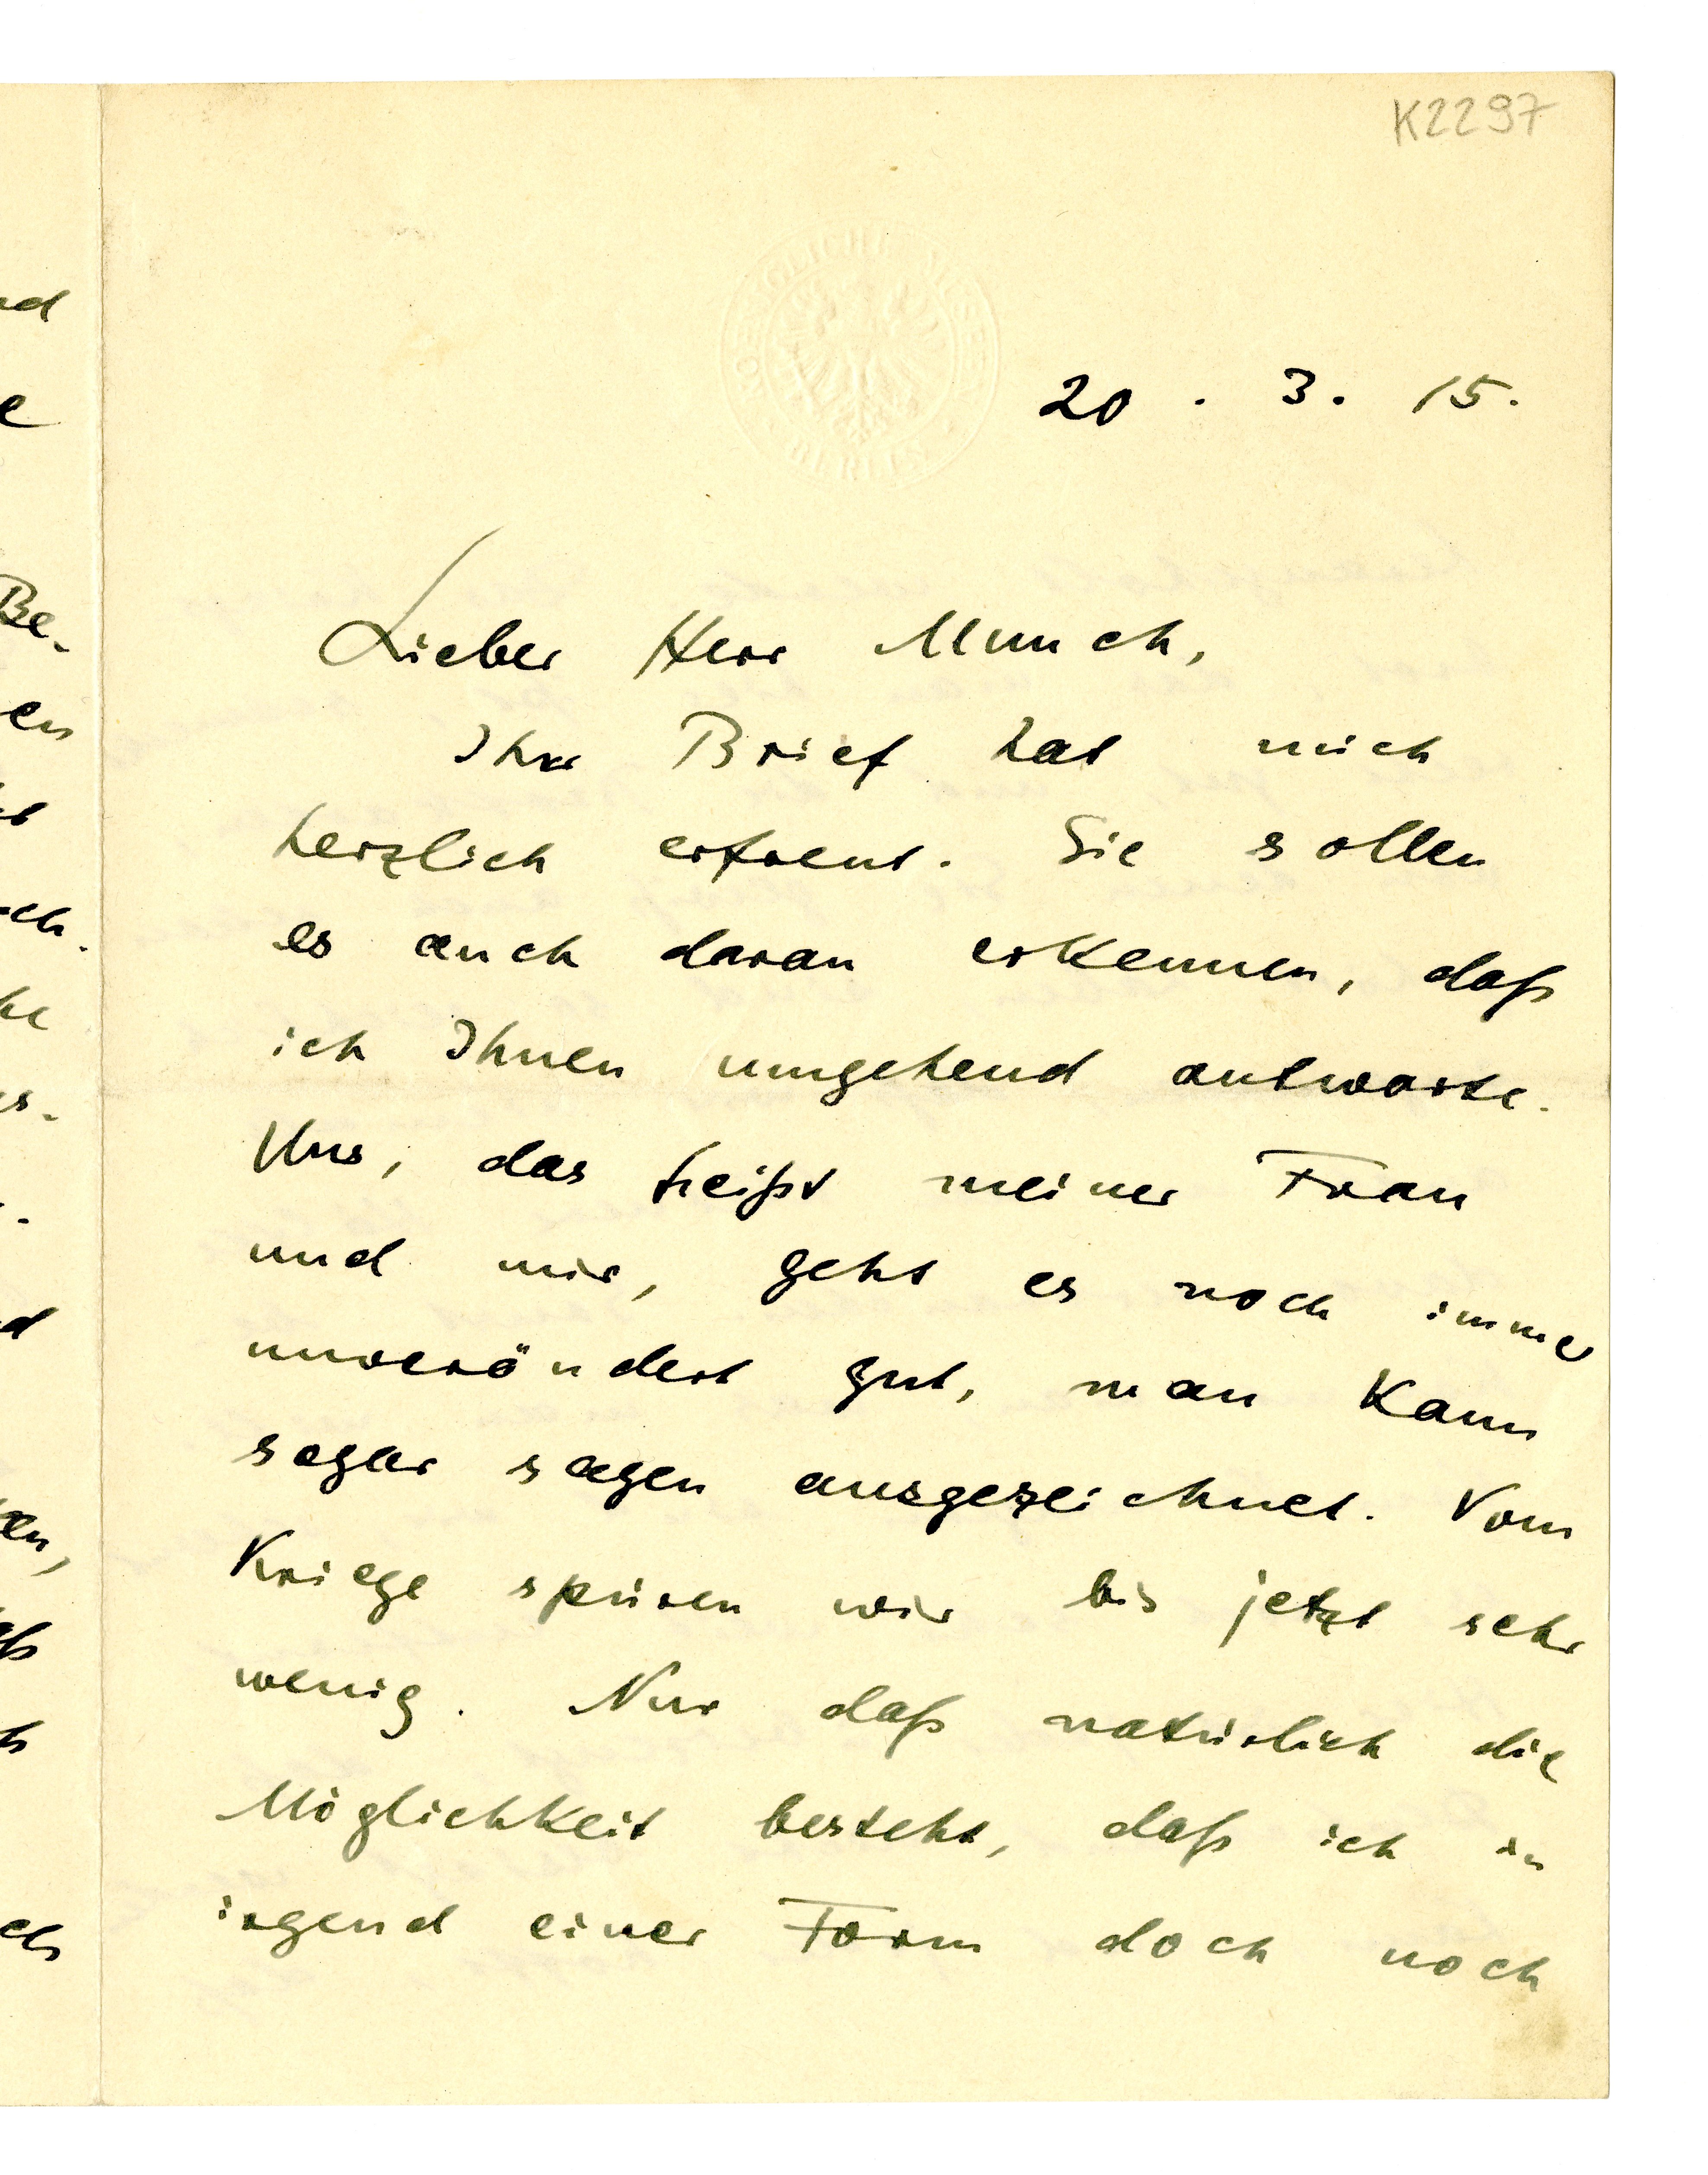 K2297
KOENIGLICHE MUSEEN
BERLIN
20. 3. 15.
Lieber Herr Munch,
Ihr Brief hat mich
herzlich erfreut. Sie sollen
es auch daran erkennen, daß
ich Ihnen umgehend antworte.
Uns, das heißt meiner Frau
und mir, geht es noch immer
unverändert gut, man kann
sogar sagen ausgezeichnet. Vom
Kriege spüren wir bis jetzt sehr
wenig. Nur daß natürlich die
Möglichkeit besteht, daß ich in
irgend einer Form doch noch